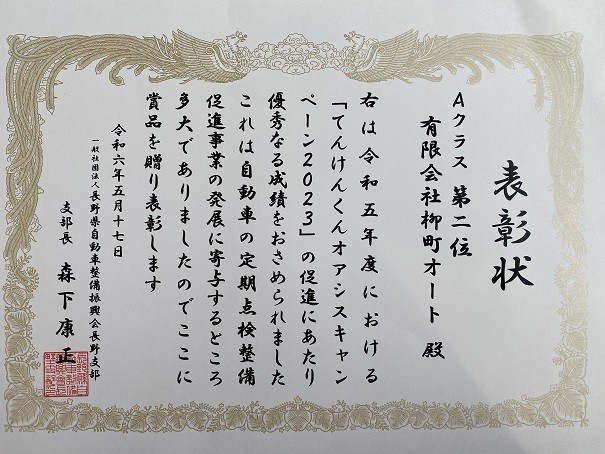 表彰状
Aクラス 第二位
有限会社柳町オート 殿
右は令和五年度における
「てんけんくんオアシスキャン
ペーン2023」の促進にあたり
優秀なる成績をおさめられました
これは自動車の定期点検整備
促進事業の発展に寄与するところ
多大でありましたのでここに
賞品を贈り表彰します
令和六年五月十七日
一般社団法人長野県自動車整備振興会長野支部
支部長 森下康正